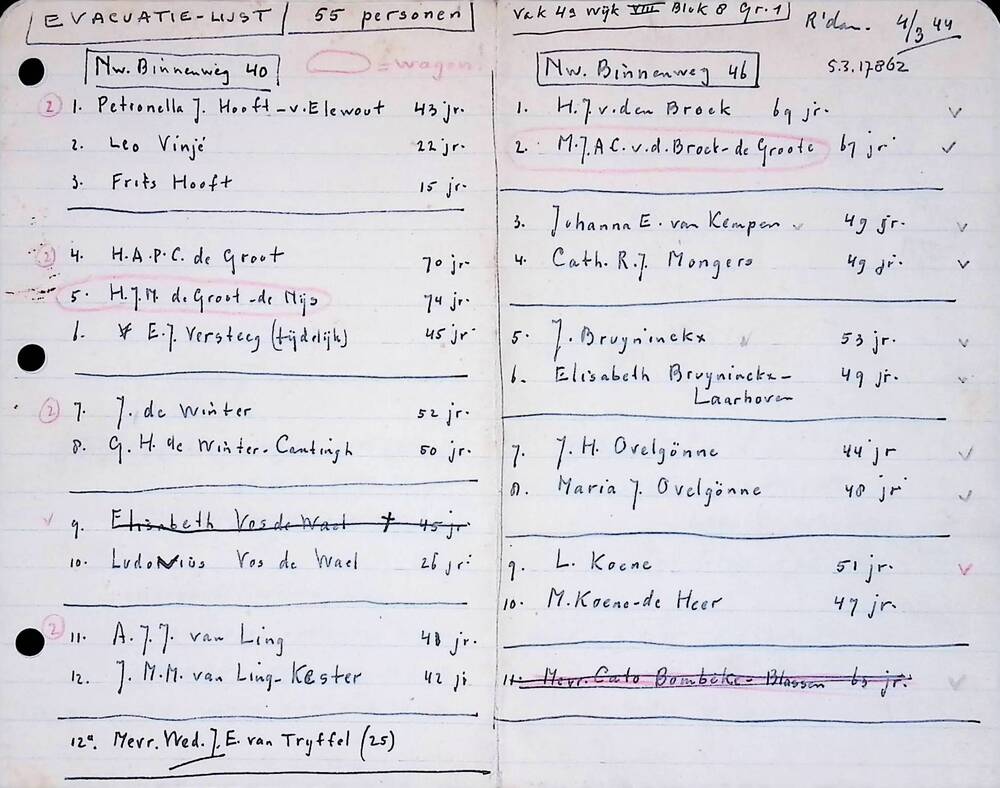 EVACUATIE-LIJST / 55 personen
Nw. Binnenweg 40 = wagon
② 1. Petronella J. Hooft-v. Elewout 43 jr.
2. Leo Vinjé 22 jr.
3. Frits Hooft 15 jr.
② 4. H.A.P.C. de Groot 70 jr.
5. H.J.M. de Groot-de Nijs 74 jr.
6. E.J. Versteeg (tijdelijk) 45 jr
② 7. J. de Winter 52 jr.
8. G.H. de Winter-Cantingh 50 jr.
9. Elisabeth Vos de Wael † 45 jr
10. Ludovicus Vos de Wael 26 jr.
② 11. A.J.J. van Ling 48 jr.
12. J.M.M. van Ling-Kester 42 jr
12a. Mevr. Wed. J.E. van Tryffel (25)
Vak 49 Wijk VIII Blok 8 Gr. 1
R'dam. 4/3 44
S.3.17862
Nw. Binnenweg 46
1. H.J. v. den Broek 69 jr.
2. M.J.A.C. v.d. Broek-de Groote 67 jr
3. Johanna E. van Kempen 49 jr.
4. Cath. R.J. Mongers 49 jr.
5. J. Bruyninckx 53 jr.
6. Elisabeth Bruyninckx- 49 jr.
Laarhoven
7. J.H. Ovelgönne 44 jr
8. Maria J. Ovelgönne 48 jr
9. L. Koene 51 jr.
10. M. Koene-de Heer 47 jr.
11. Mevr. Cato Bombeke-Blassen 65 jr.